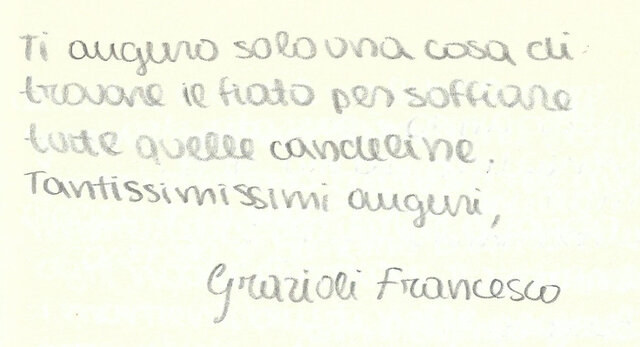 Ti auguro solo una cosa di
trovare il fiato per soffiare
tutte quelle candeline.
Tantissimissimi auguri,
Grazioli Francesco